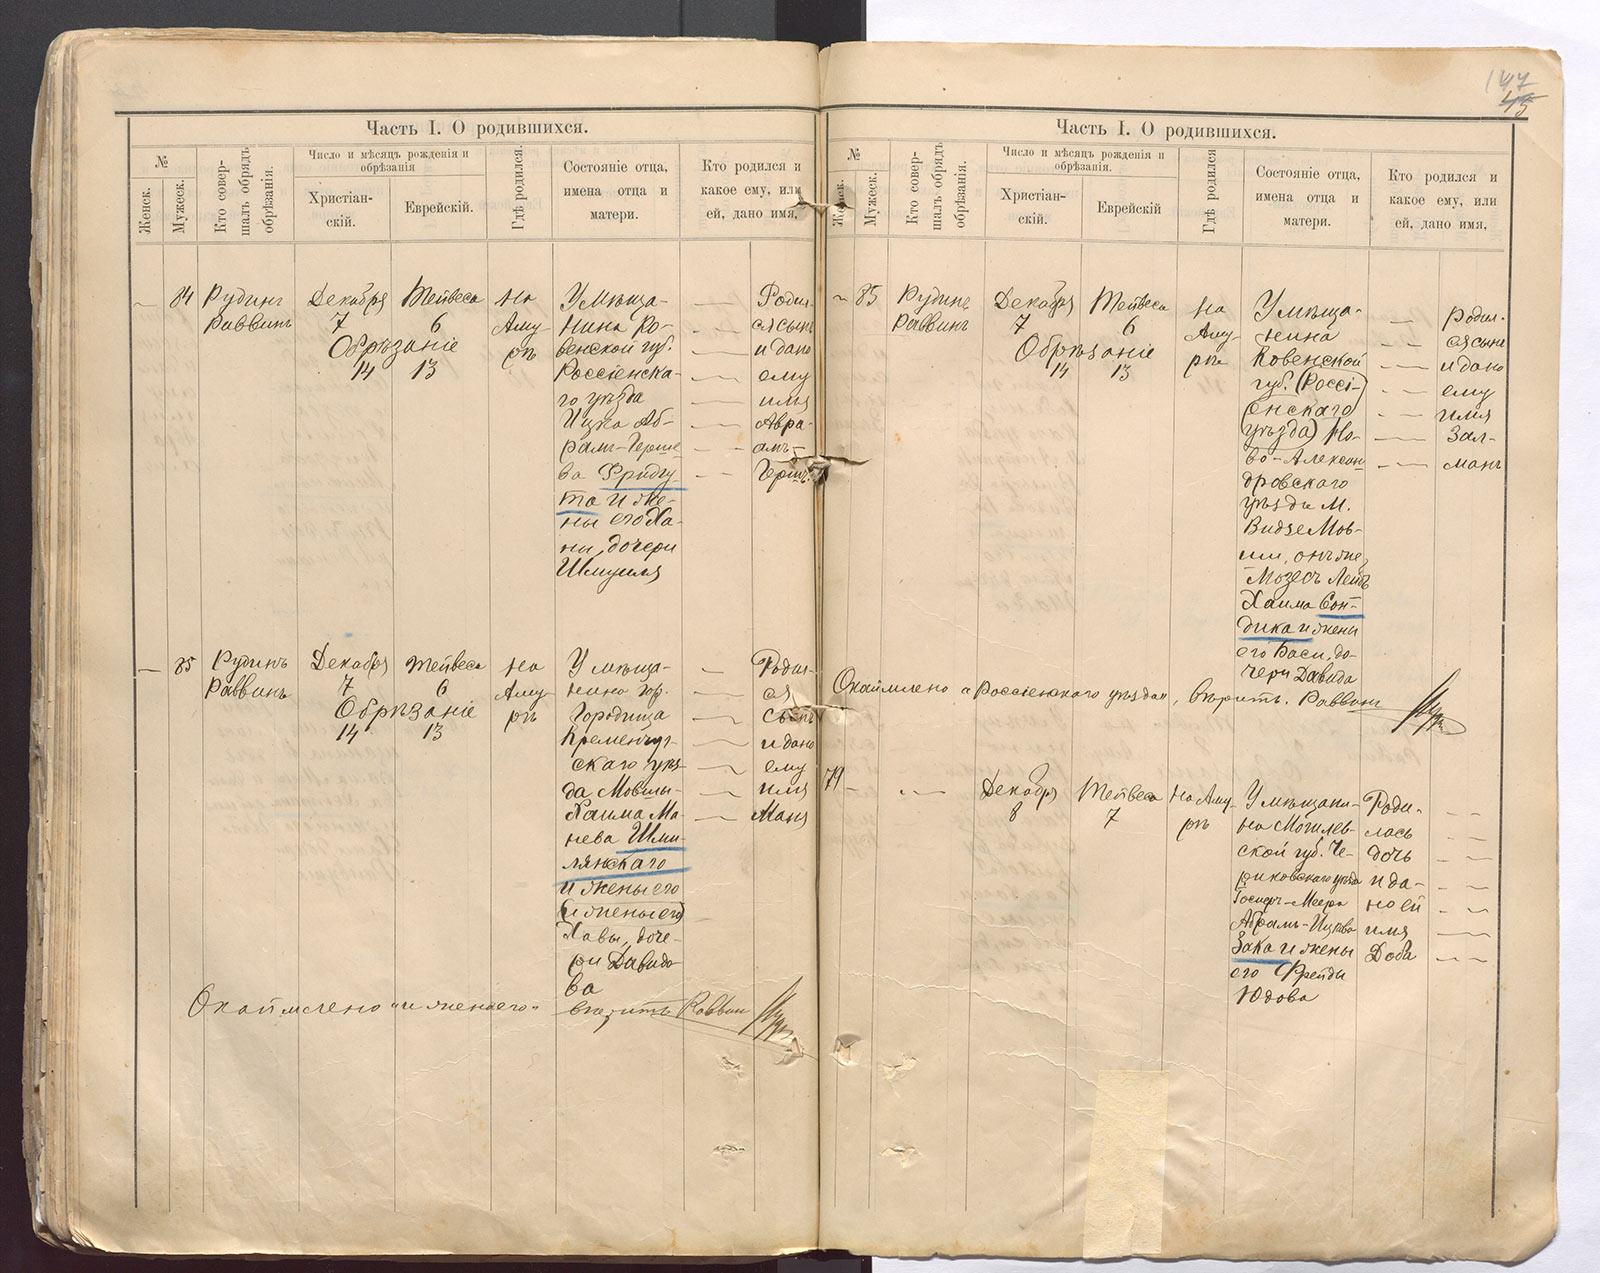 147
45
Часть I. О родившихся.
№
Женск.
Мужеск.
Кто совер-
шалъ обрядъ
обрѣзанія.
Число и мѣсяцъ рожденія и
обрѣзанія
Христіан-
скій.
Еврейскій.
Гдѣ родился.
Состояніе отца,
имена отца и
матери.
Кто родился и
какое ему, или
ей, дано имя,
84
Рудинъ
Раввинъ
Декабря
7
Тейвеса
6
Обрѣзаніе
14 13
На
Аму-
рѣ
У мѣща-
нина Ко-
венской губ.
Россіенска-
го уѣзда
Ицка Аб-
рамъ-Герше-
ва Фридгу
та и же-
ны его Ха-
ны, дочери
Шмуиля
Родил-
ся сынъ
и дано
ему
имя
Авра-
амъ-
Гершъ.
85
Рудинъ
Раввинъ
Декабря
7
Тейвеса
6
Обрѣзаніе
14 13
На
Аму-
рѣ
У мѣща-
нина гор.
Городища
Кременчуг-
скаго уѣз-
да Мовшы-
Хаима Ма-
нева Шми-
лянскаго
и жены его
(и жены его)
Хавы, доче-
ри Давидо-
ва
Родил-
ся
сынъ
и дано
ему
имя
Маня
Окаймлено "и жены его" вѣритъ Раввин
Часть I. О родившихся.
№
Женск.
Мужеск.
Кто совер-
шалъ обрядъ
обрѣзанія.
Число и мѣсяцъ рожденія и
обрѣзанія.
Христіан-
скій.
Еврейскій
Гдѣ родился
Состояніе отца,
имена отца и
матери.
Кто родился и
какое ему, или
ей, дано имя,
85
Рудинъ
Раввинъ
Декабря
7
Тейвеса
6
Обрѣзаніе
14 13
На
Аму-
рѣ
У мѣща-
нина
Ковенской
губ. (Россі-
енскаго
уѣзда) Но-
во-Алексан-
дровскаго
уѣзда М.
Видзе Мов-
ши, онъ же
Мозесъ Лейбъ
Хаима Сон-
дика и жены
его Баси, до-
чери Давида
Родил-
ся сынъ
и дано
ему
имя
Зал-
манъ
Окаймлено "Россіенскаго уѣзда", вѣритъ. Раввинъ
79
Декабря
8
Тейвеса
7
На Аму-
рѣ
У мѣщани-
на Могилев-
ской губ. Че-
риковскаго уѣзда
Іосифъ-Меера
Абрамъ-Ицкова
Зака и жены
его Фрейды
Юдова
Роди-
лась
дочь
и да-
но ей
имя
Доба